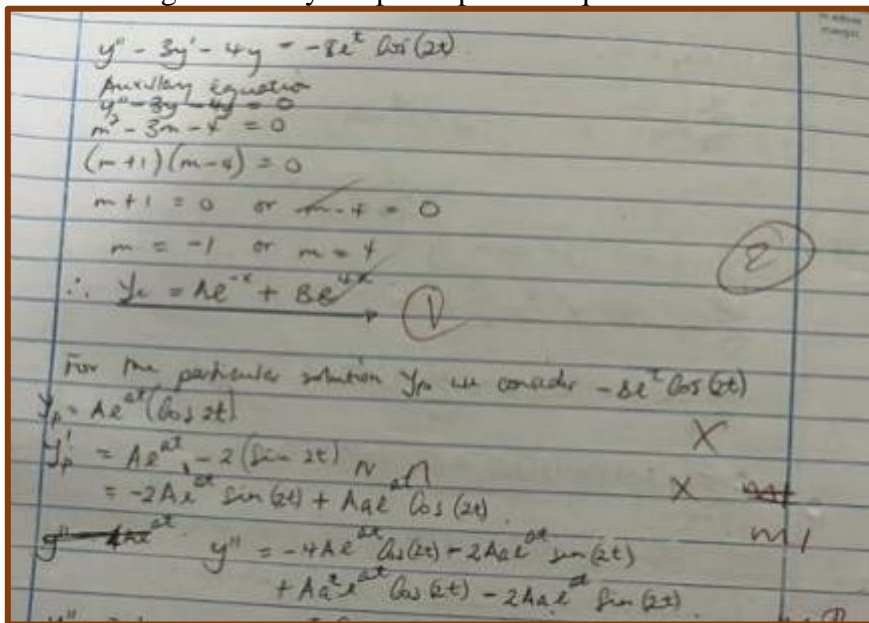 y'' - 3y' - 4y = -8e^t Cos(2t)
Auxillary Equation
y'' - 3y - 4y = 0
m² - 3m - 4 = 0
(m+1)(m-4) = 0
m+1 = 0 or m-4 = 0
m = -1 or m = 4
2
∴ y_c = Ae^{-x} + Be^{4x}
1
For the particular solution y_p we consider -8e^t Cos(2t)
y_p = Ae^{at}(Cos 2t)
X
y_p' = Ae^{at}, -2(Sin 2t)
= -2Ae^{at} sin(2t) + Aae^{at} Cos(2t)
X
M1
y'' = -4Ae^{at} Cos(2t) - 2Aae^{at} sin(2t)
+ Aa²e^{at} Cos(2t) - 2Aae^{at} Sin(2t)